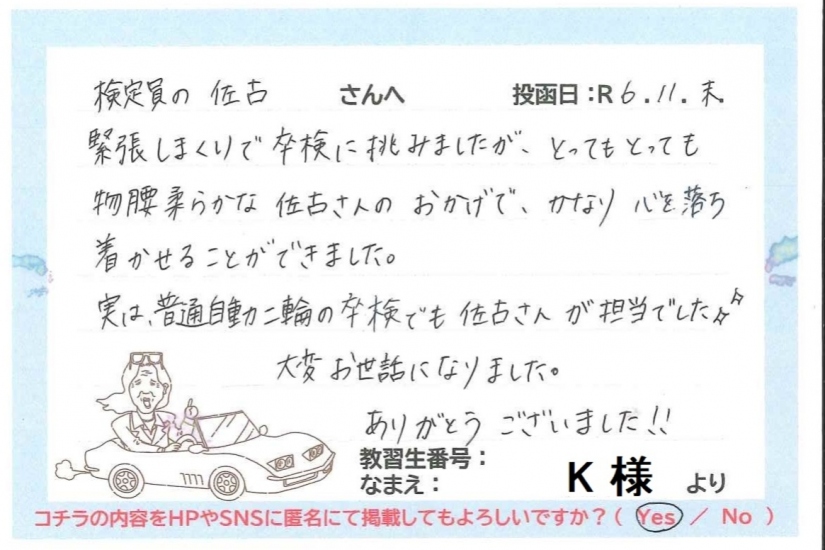 検定員の 佐古 さんへ 投函日：R 6.11.末.
緊張しまくりで 卒検に挑みましたが、とってもとっても
物腰柔らかな 佐古さんの おかげで、かなり 心を落ち
着かせることができました。
実は、普通自動二輪の卒検でも 佐古さん が担当でした
大変お世話になりました。
ありがとう ございました!!
教習生番号：
なまえ： K 様 より
コチラの内容をHPやSNSに匿名にて掲載してもよろしいですか？（ Yes ／ No ）